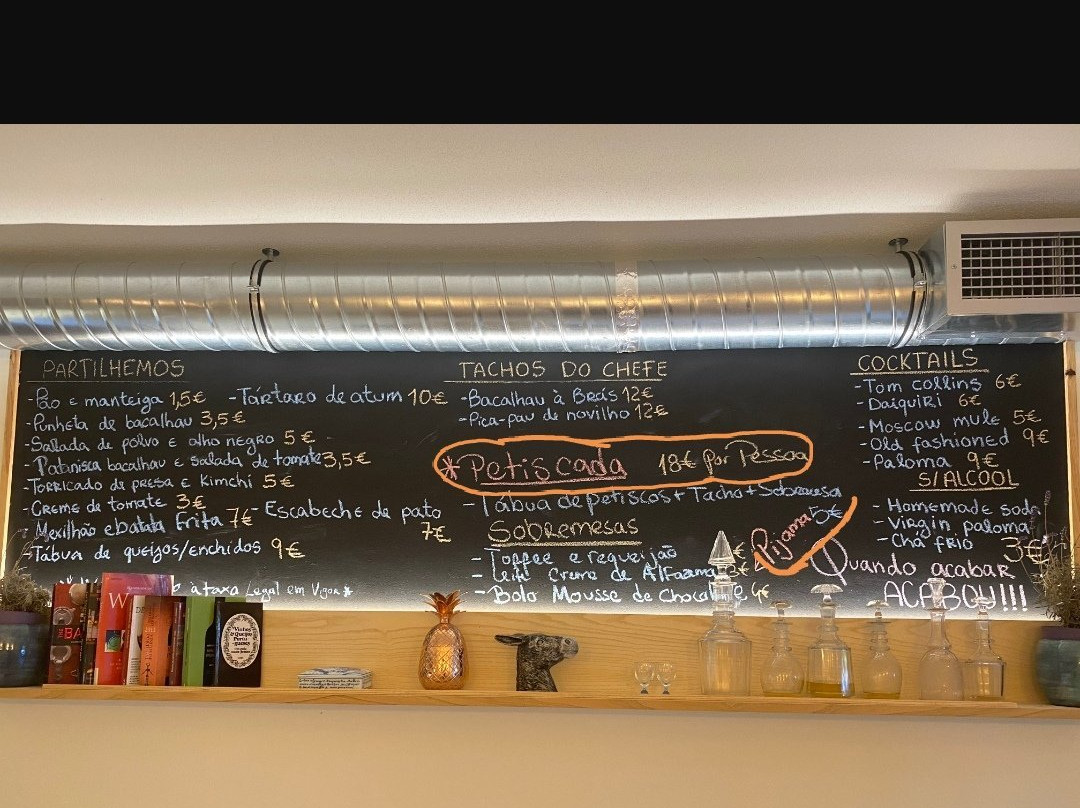 PARTILHEMOS
- Pão e manteiga 1,5€ - Tártaro de atum 10€
- Punheta de bacalhau 3,5€
- Salada de polvo e alho negro 5€
- Pataniscа bacalhau e salada de tomate 3,5€
- Torricado de presa e Kimchi 5€
- Creme de tomate 3€
- Mexilhão e batata frita 7€ - Escabeche de pato 7€
- Tábua de queijos/enchidos 9€
à taxa legal em vigor *
TACHOS DO CHEFE
- Bacalhau à Brás 12€
- Pica-pau de novilho 12€
* Petiscada 18€ por Pessoa
- Tábua de petiscos + Tacho + Sobremesa
Sobremesas
- Toffee e requeijão
- Leite Creme de Alfazema 3€
- Bolo Mousse de Chocolate 4€
Pijama 5€
COCKTAILS
- Tom collins 6€
- Daiquiri 6€
- Moscow mule 5€
- Old fashioned 9€
- Paloma 9€
S/ALCOOL
- Homemade soda
- Virgin paloma
- Chá frio 3€
Quando acabar
ACABOU!!!